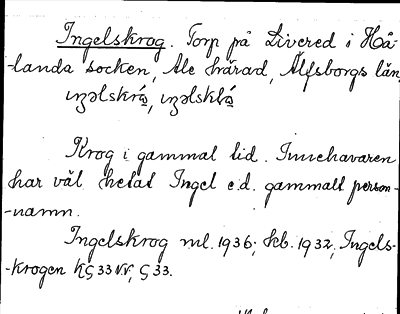 Ingelskrog. Torp på Livered i Hå-
-landa socken, Ale härad, Älfsborgs län.
ıŋəlskrǻ, ıŋəlsklǻ
Krog i gammal tid. Innehavaren
har väl hetat Ingel e.d. gammalt person-
-namn.
Ingelskrog ml. 1936; kb. 1932, Ingels-
-krogen KG 33 NV, G 33.